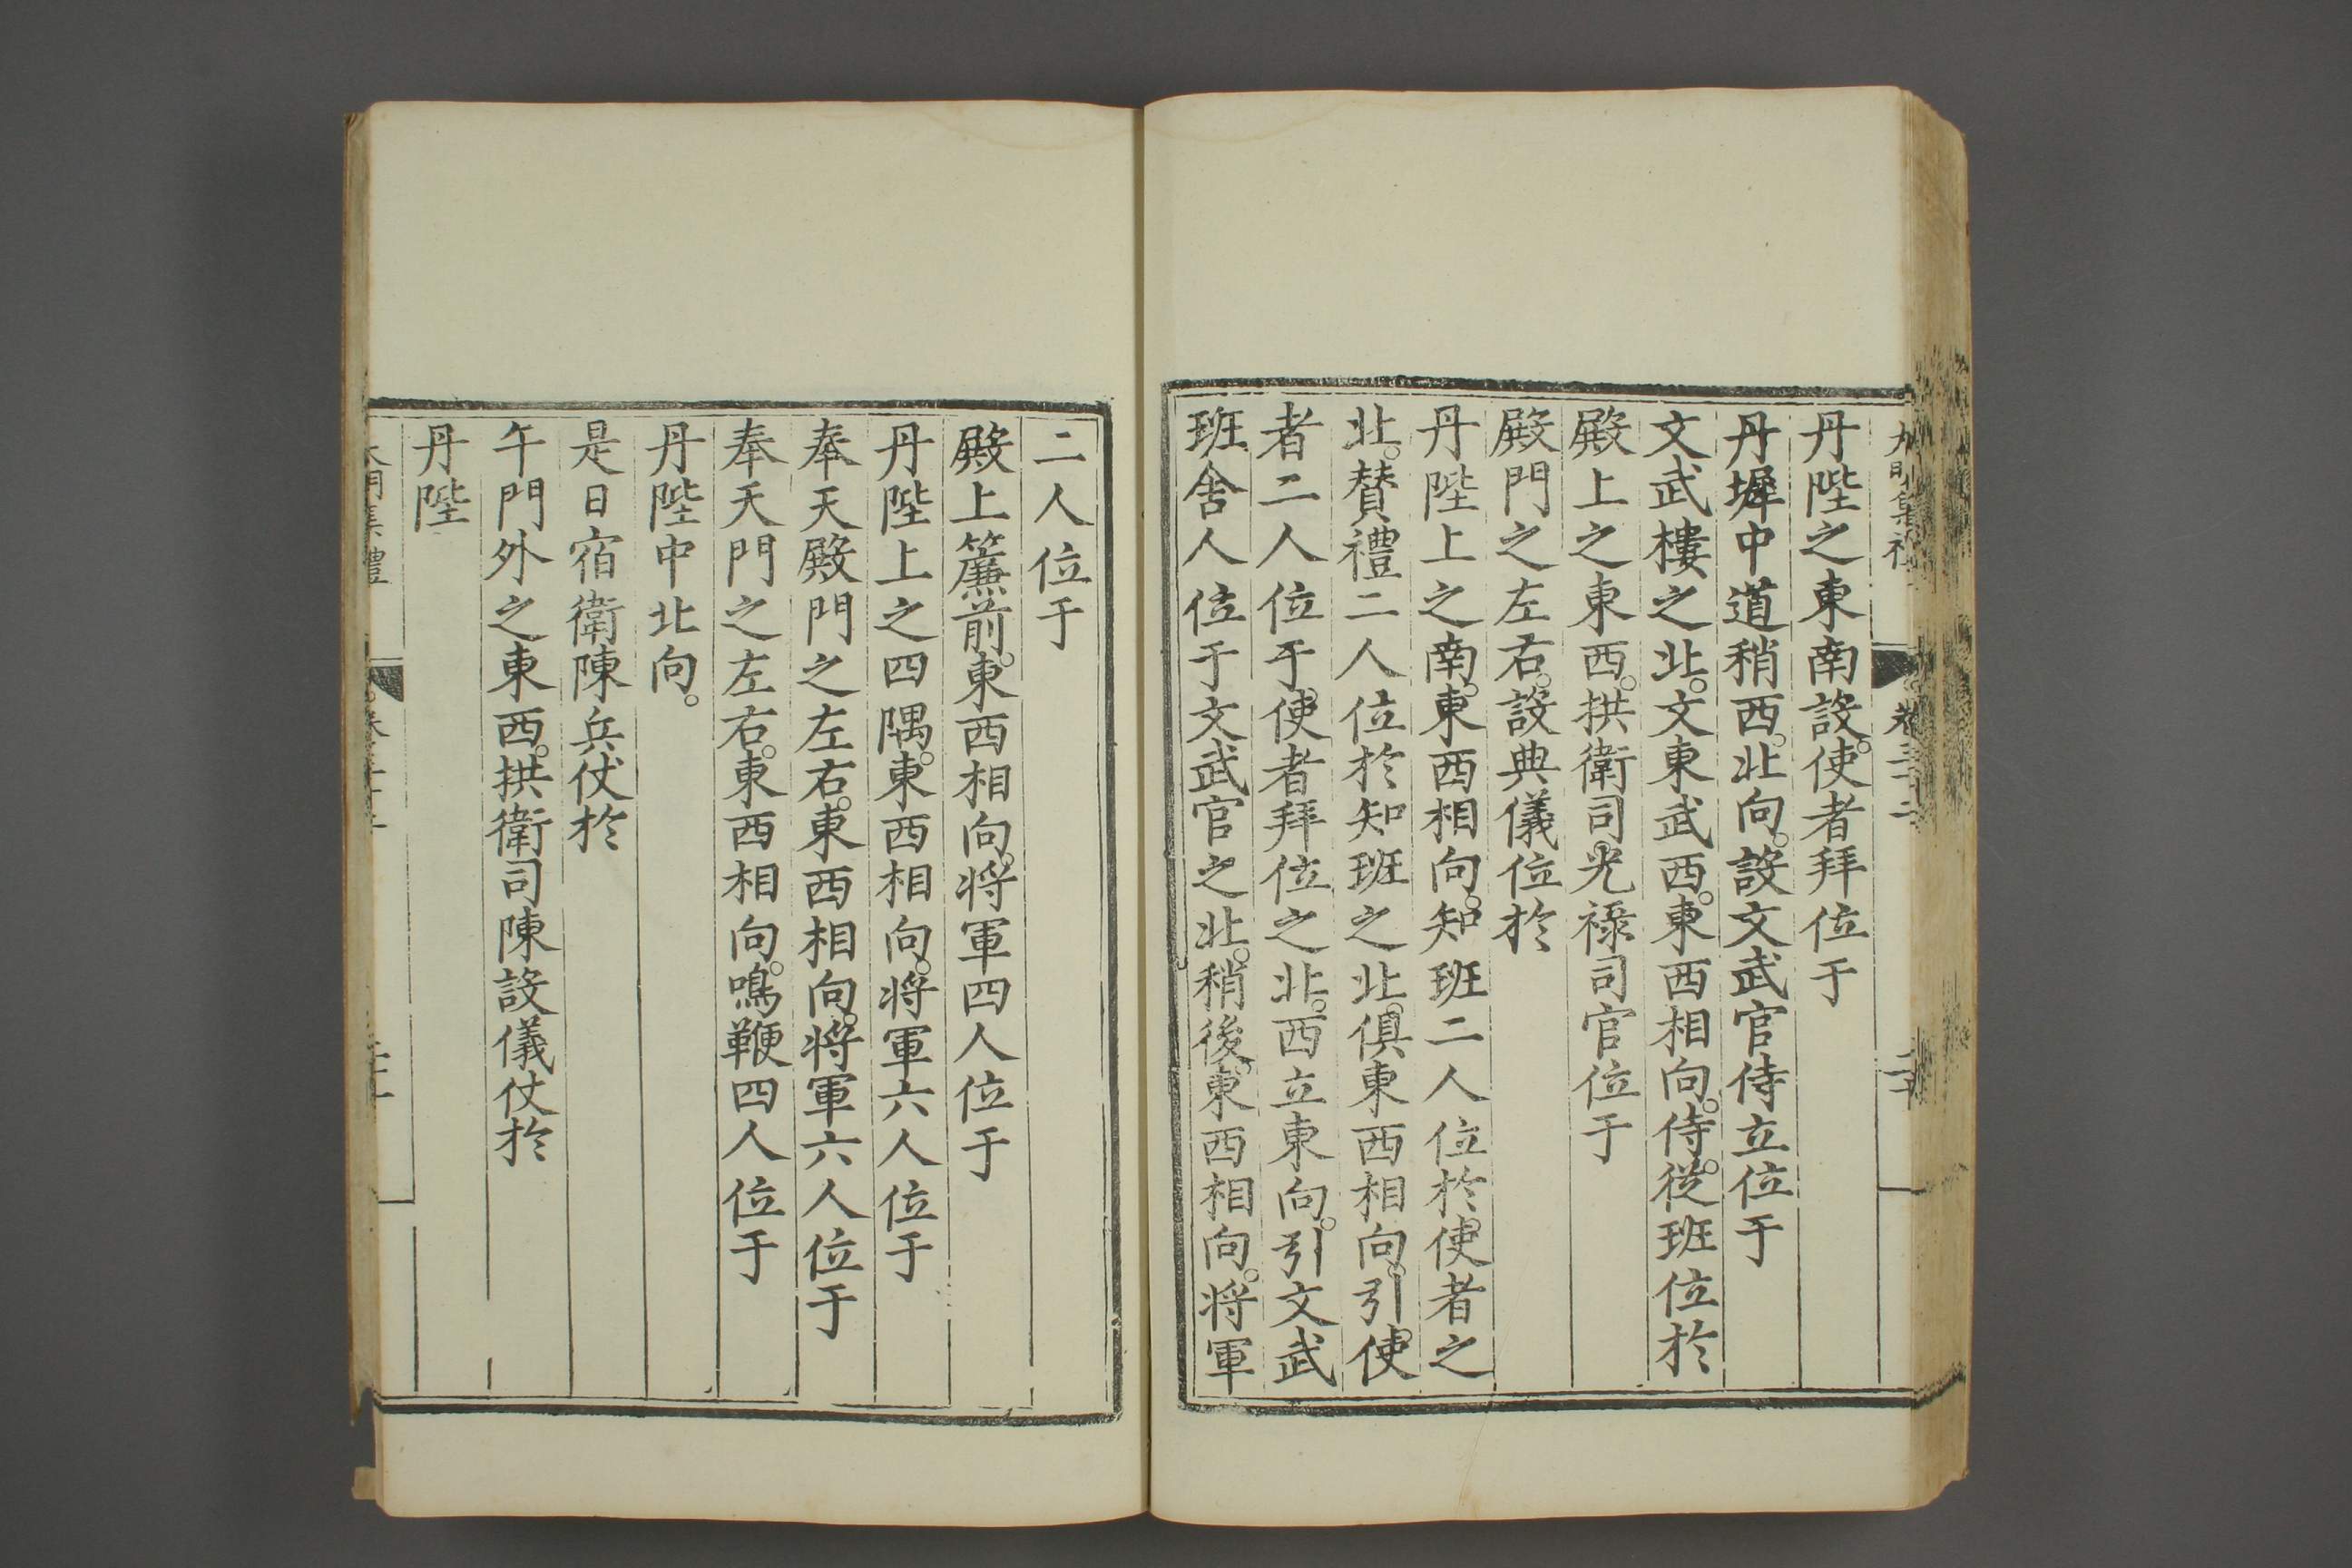 丹陛之東南設。使者拜位于
丹墀中道稍西。北向。設文武官侍立位于
文武樓之北。文東武西。東西相向。侍。從班位於
殿上之東西。拱衛司。光禄司官位于
殿門之左右。設典儀位於
丹陛上之南。東西相向。知班二人位於使者之
北。賛禮二人位於知班之北。俱東西相向。引使
者二人位于使者拜位之北。西立東向。引文武
班舍人位于文武官之北。稍後。東西相向。将軍
二人位于
殿上簾前。東西相向。将軍四人位于
丹陛上之四隅。東西相向。将軍六人位于
奉天殿門之左右。東西相向。将軍六人位于
奉天門之左右。東西相向。鳴鞭四人位于
丹陛中北向。
是日宿衛陳兵仗於
午門外之東西。拱衛司陳設儀仗於
丹陛